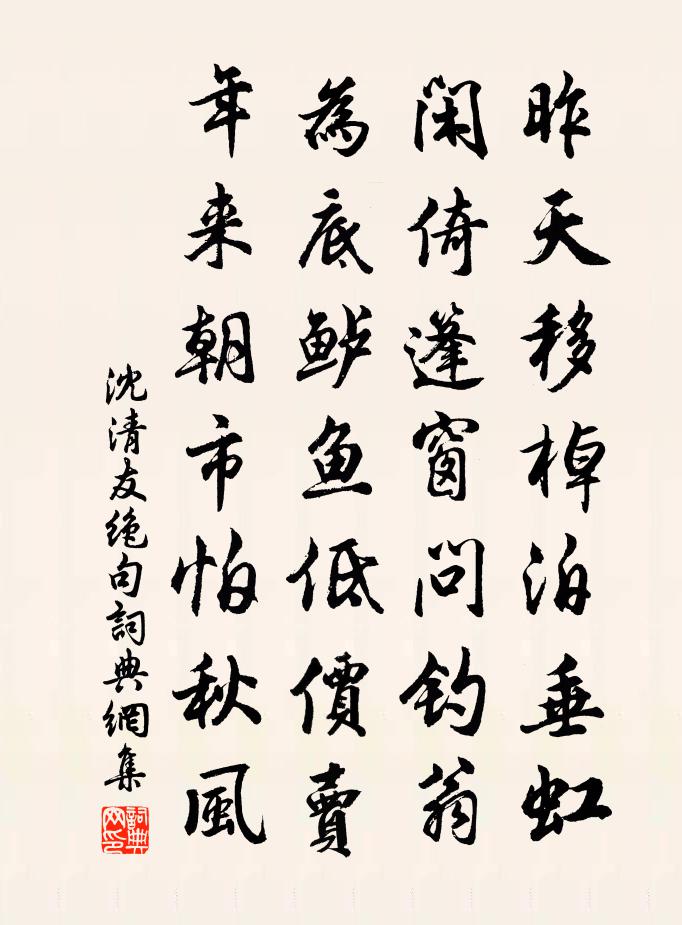 昨天移棹泊垂虹
閑倚蓬窗問钓翁
為底鲈魚低價賣
年来朝市怕秋風
沈清友绝句詞典網集
詞典網印